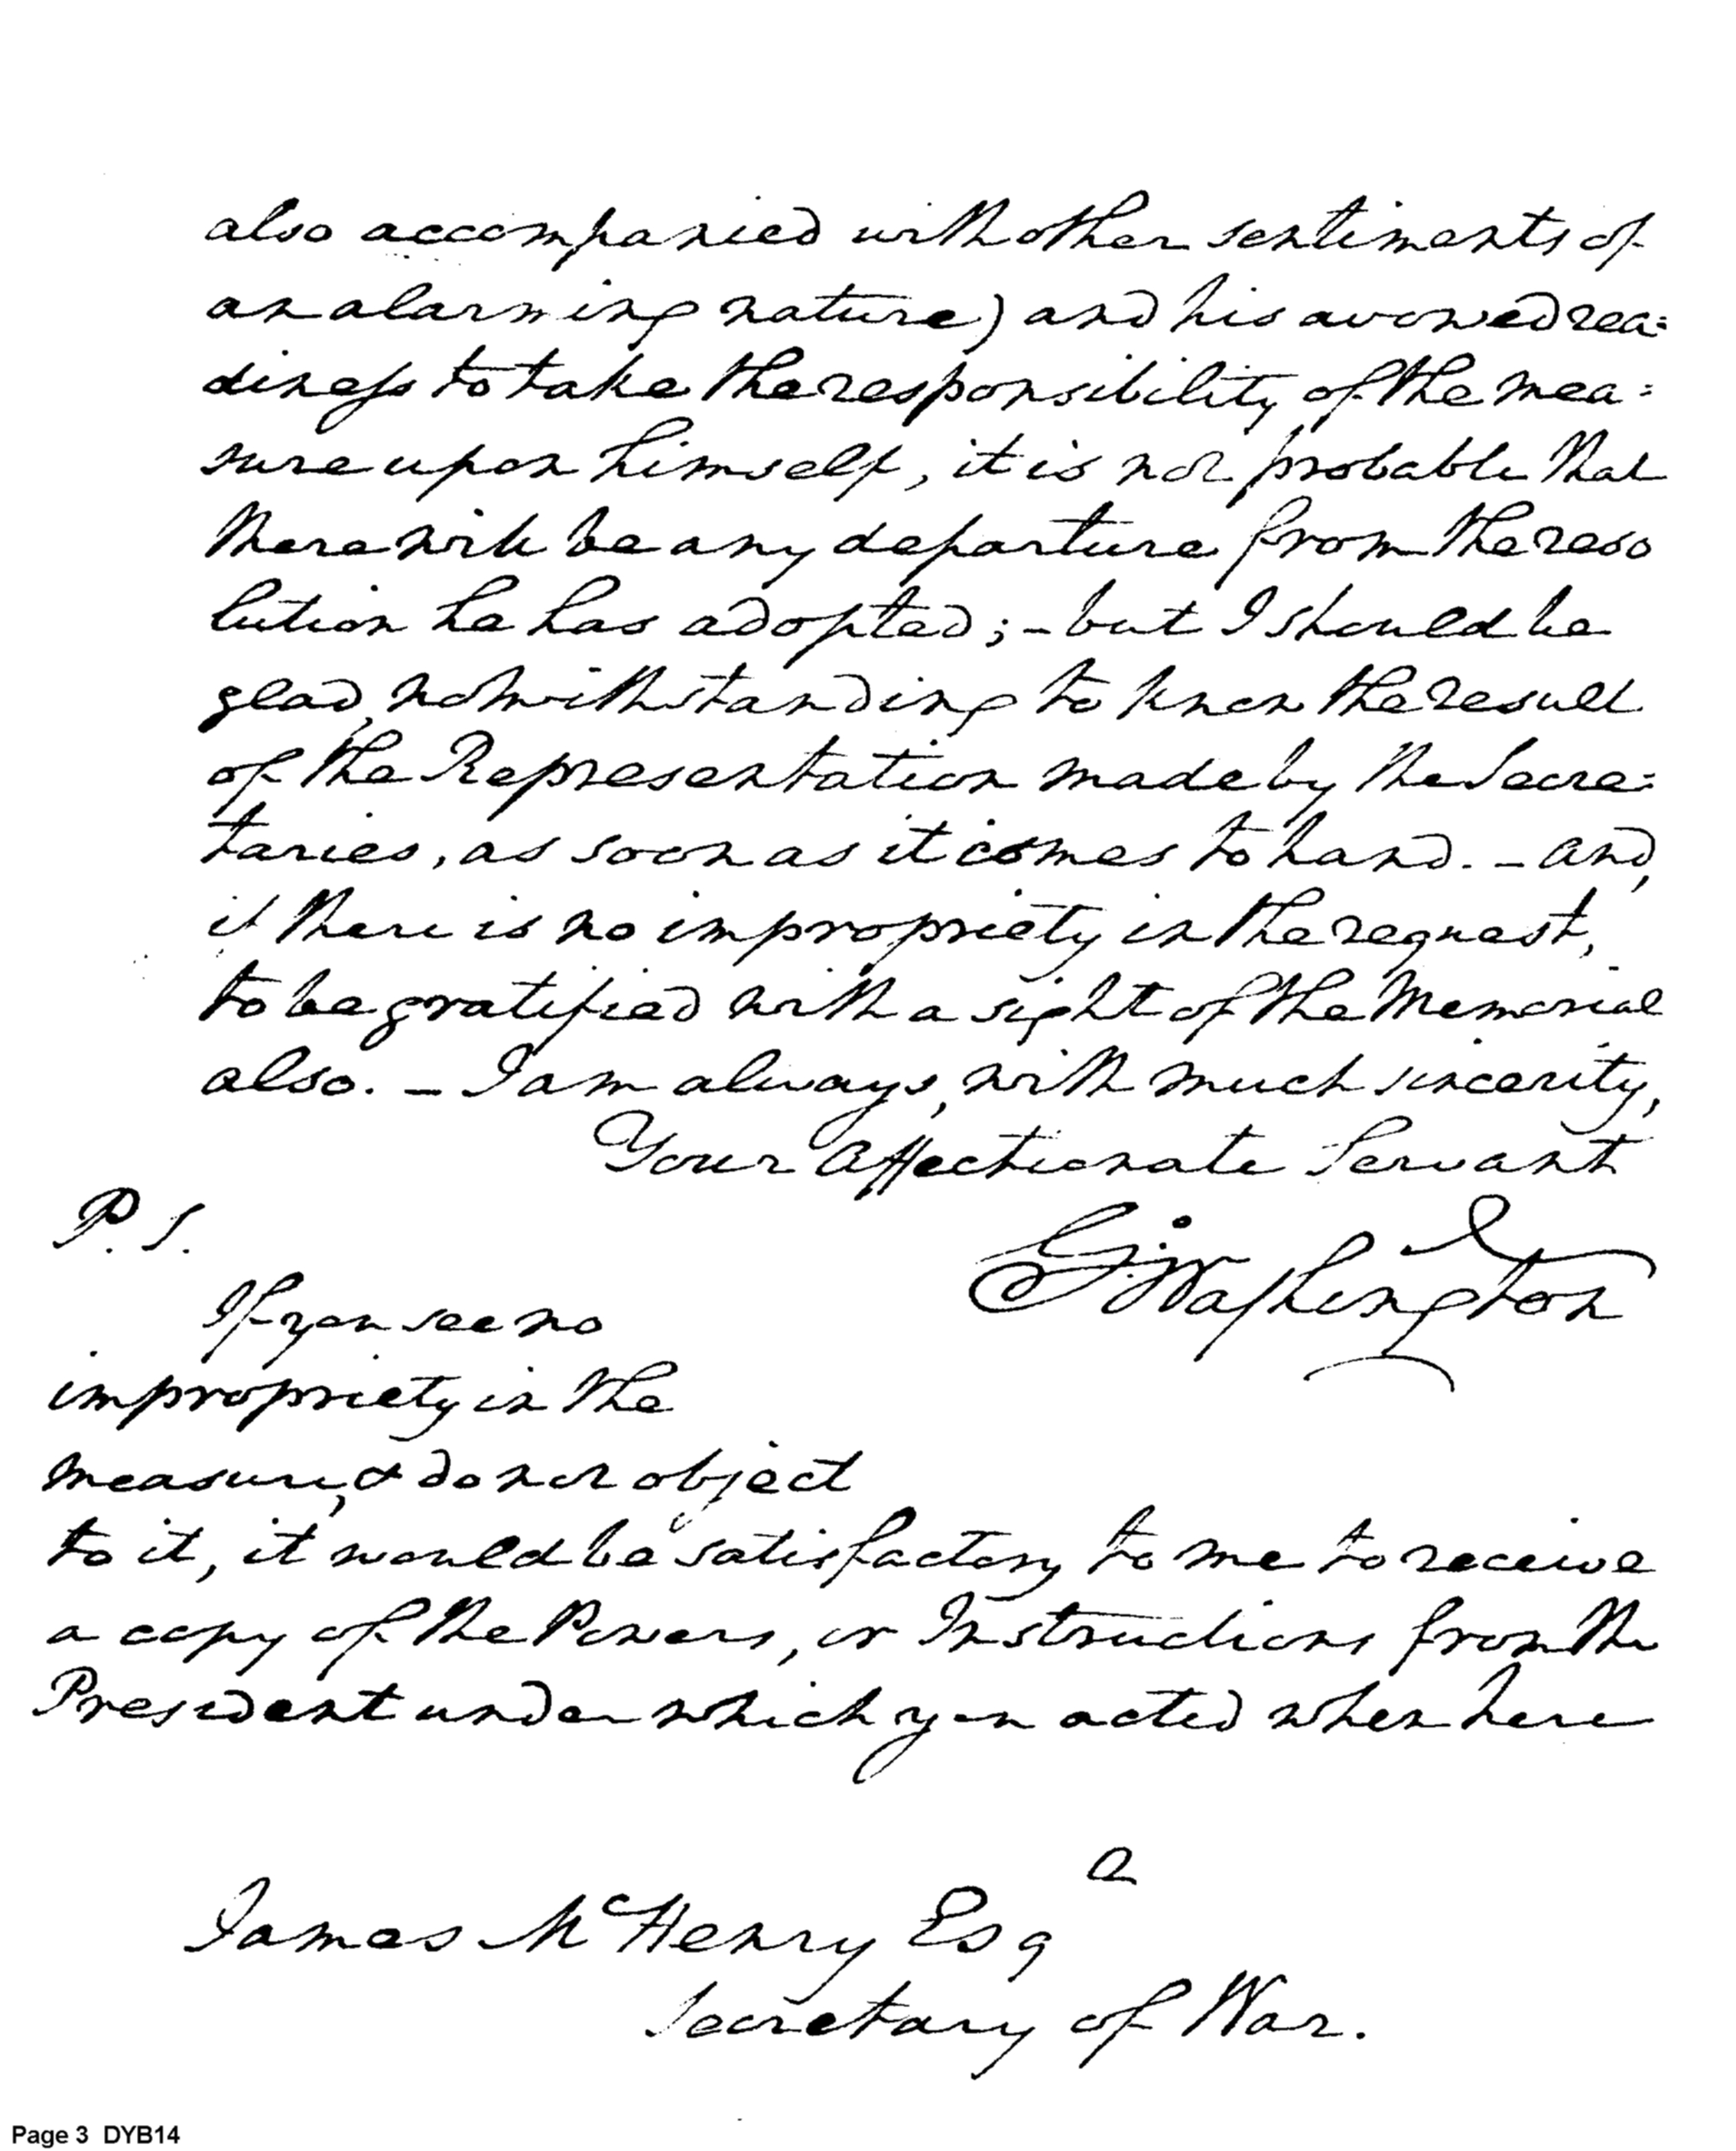 also accompanied with other sentiments of
an alarming nature) and his avowed rea=
diness to take the responsibility of the mea=
sure upon himself, it is not probable that
there will be any departure from the reso
lution he has adopted; – but I should be
glad, notwithstanding to know the result
of the Representation made by the Secre=
taries, as soon as it comes to hand. – and,
if there is no impropriety in the request,
to be gratified with a sight of the Memorial
also. – I am always, with much sincerity,
Your Affectionate Servant
Go: Washington
P. S.
If you see no
impropriety in the
measure, & do not object
to it, it would be satisfactory to me to receive
a copy of the Powers, or Instructions from the
President under which you acted when here
James McHenry Esqe
Secretary of War.
Page 3 DYB14